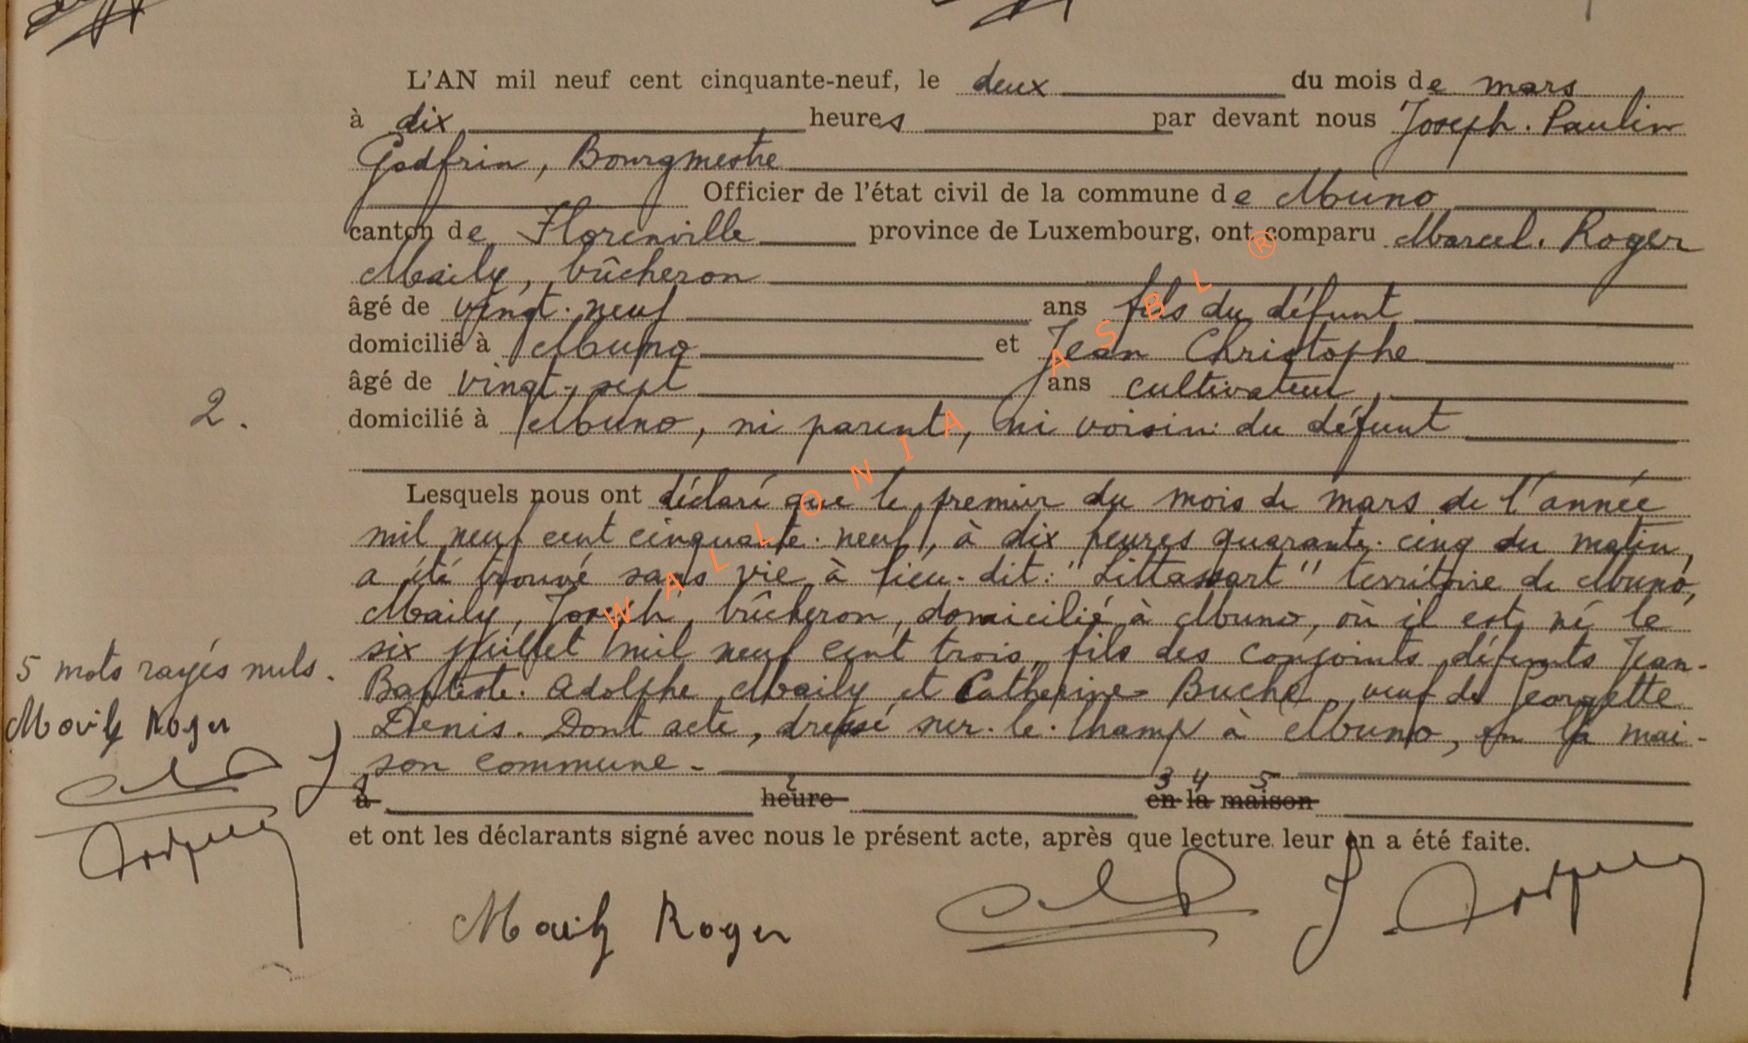 L'AN mil neuf cent cinquante-neuf, le deux du mois de mars
à dix heures par devant nous Joseph. Paulin
Godfrin, Bourgmestre
Officier de l'état civil de la commune de Muno
canton de Florenville province de Luxembourg, ont comparu Marcel. Roger
Maily, bûcheron
âgé de vingt. neuf ans fils du défunt
domicilié à Muno et Jean Christophe
âgé de vingt-sept ans cultivateur,
2. domicilié à Muno, ni parent, ni voisin du défunt
Lesquels nous ont déclaré que le premier du mois de mars de l'année
mil neuf cent cinquante. neuf, à dix heures quarante. cinq du matin,
a été trouvé sans vie à lieu-dit: " " territoire de Muno,
Maily, Joseph, bûcheron, domicilié à Muno, où il est né le
six juillet mil neuf cent trois, fils des conjoints défunts Jean-
Baptiste. Adolphe Maily et Catherine Buche, veuf de Georgette
Denis. Dont acte, dressé sur. le. champ à Muno, en la mai-
son commune.-
1 2 3 4 5
à heure en la maison
et ont les déclarants signé avec nous le présent acte, après que lecture leur en a été faite.
5 mots rayés nuls.
Maily Roger
Maily Roger
WALLONIA ASBL ®